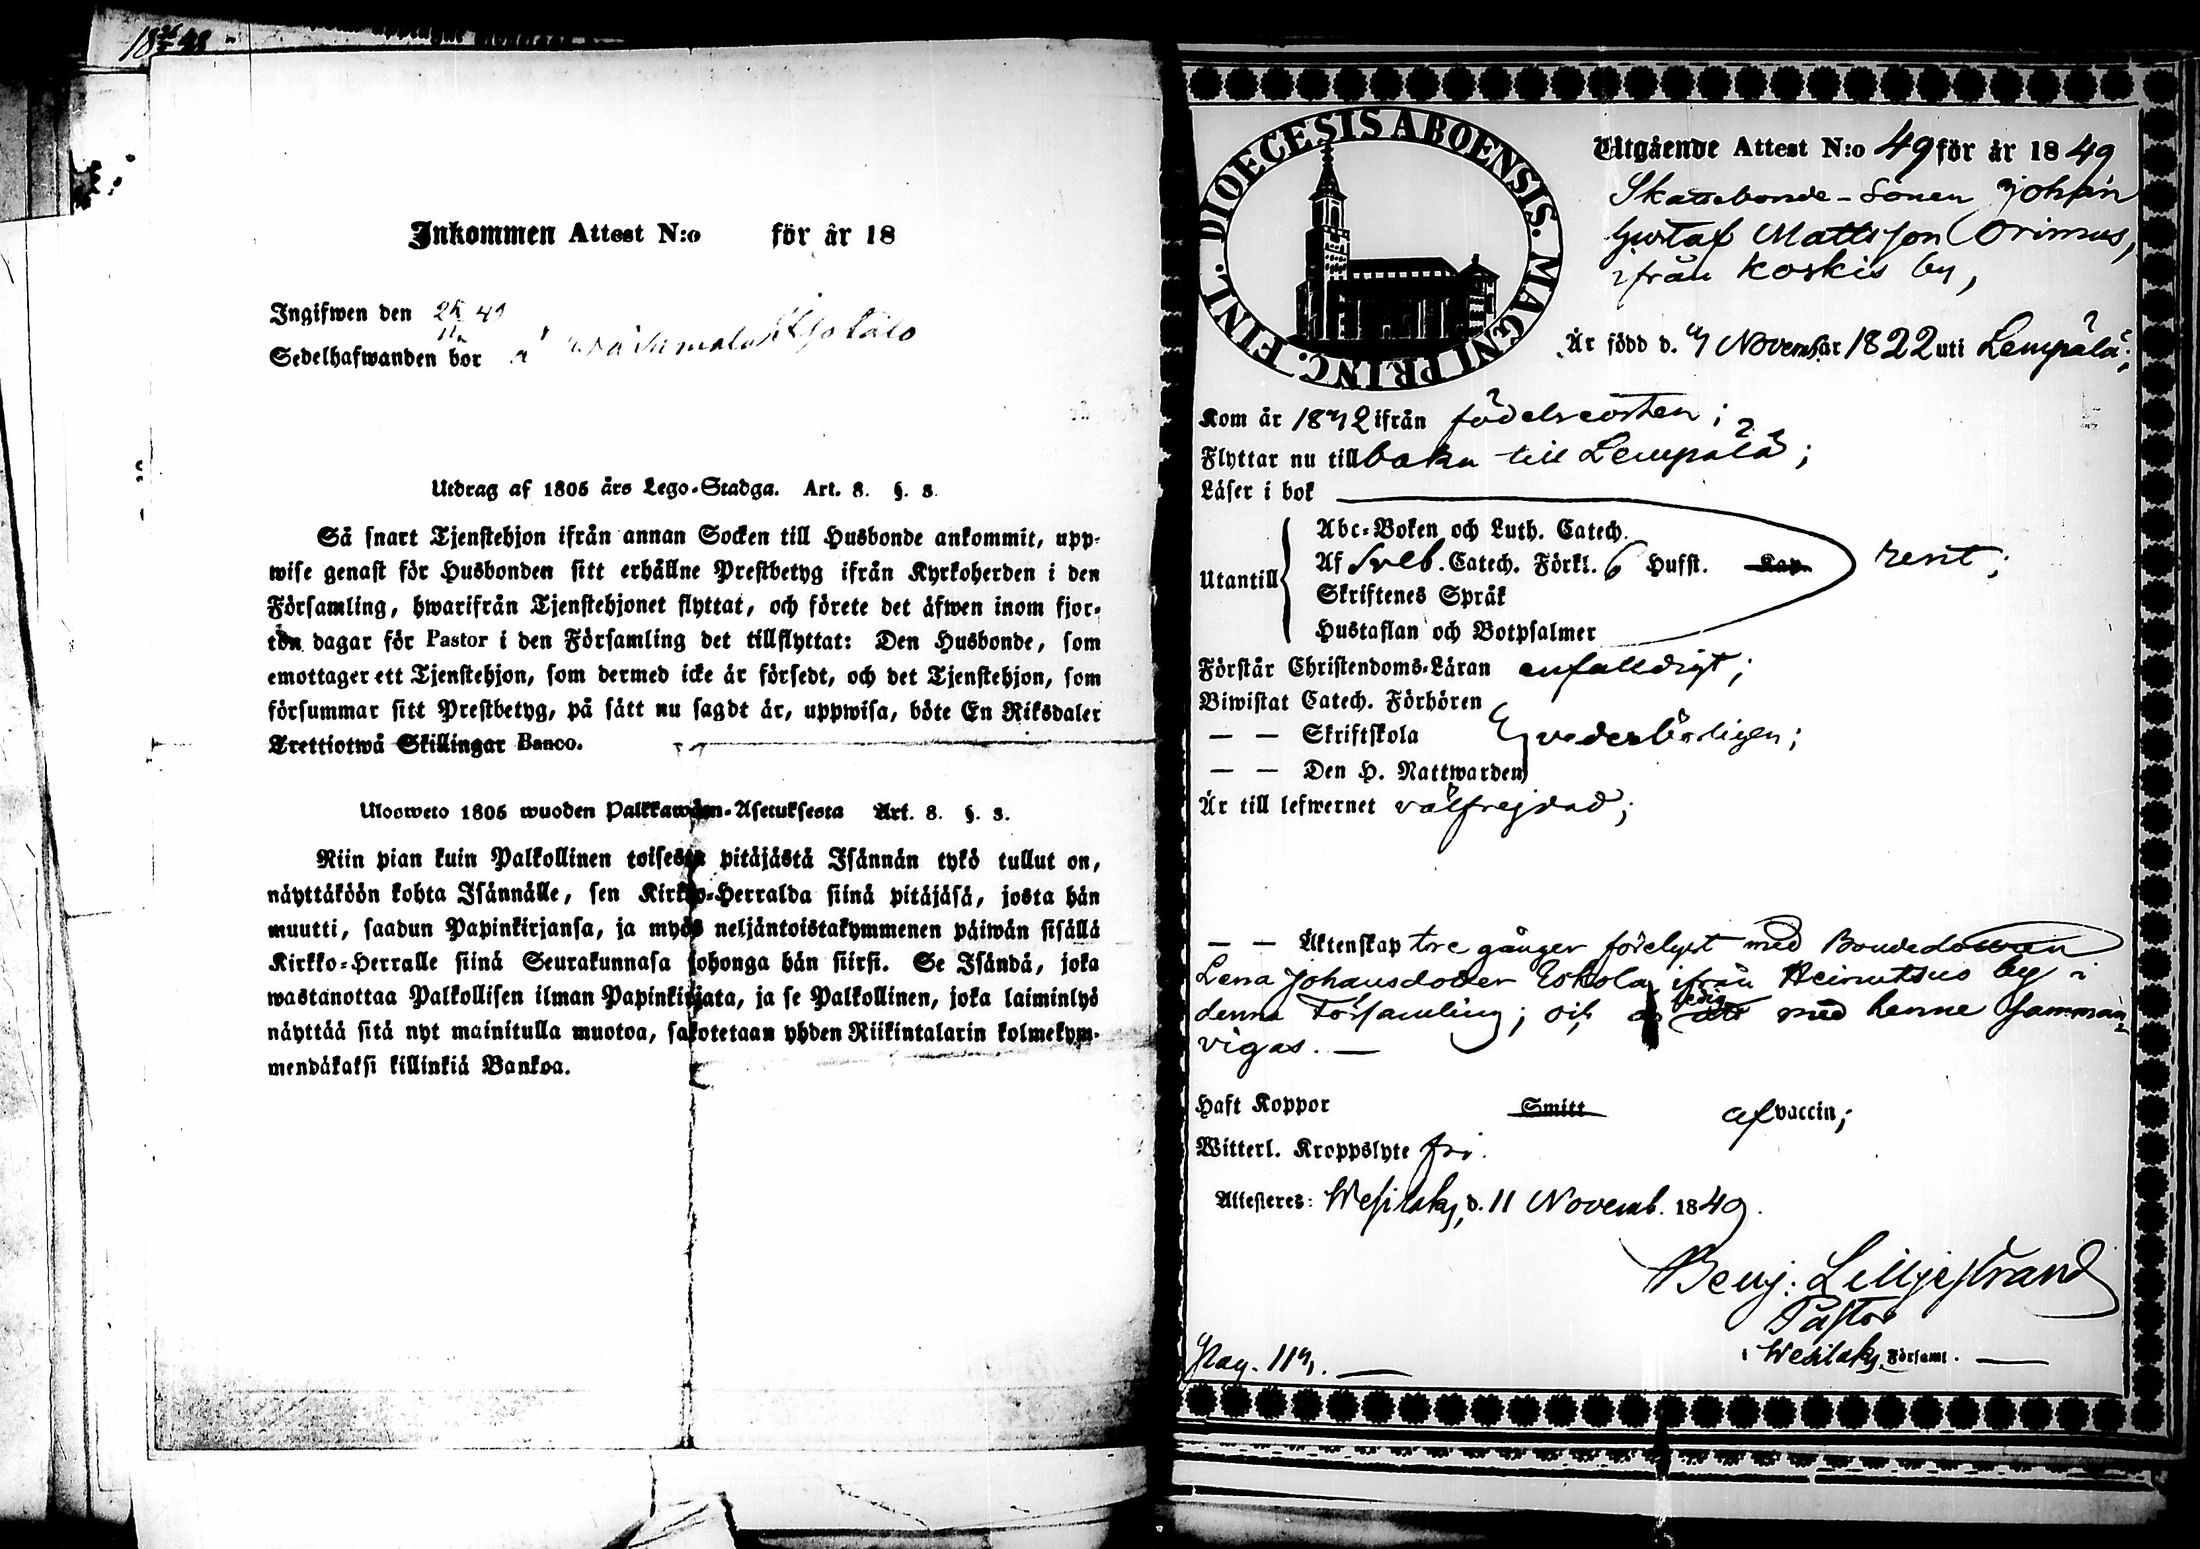 Inkommen Attest N:o för år 18
Ingifwen den
Sedelhafwanden bor
Utdrag af 1805 års Lego-Stadga. Art. 8. §. 3.
Så snart Tjenstehjon ifrån annan Socken till Husbonde ankommit, upp-
wise genast för Husbonden sitt erhållne Prestbetyg ifrån Kyrkoherden i den
Församling, hwarifrån Tjenstehjonet flyttat, och förete det äfwen inom fjor-
ton dagar för Pastor i den Församling det tillflyttat: Den Husbonde, som
emottager ett Tjenstehjon, som dermed icke är försedt, och det Tjenstehjon, som
försummar sitt Prestbetyg, på sätt nu sagdt är, uppwisa, böte En Riksdaler
Trettiotwå Skillingar Banco.
Ulosweto 1805 wuoden Palkkawäen-Asetuksesta Art. 8. §. 3.
Niin pian kuin Palkollinen toisesta pitäjästä Isännän tykö tullut on,
näyttäköön kohta Isännälle, sen Kirkko-Herralda siinä pitäjäsä, josta hän
muutti, saadun Papinkirjansa, ja myös neljäntoistakymmenen päiwän sisällä
Kirkko-Herralle siinä Seurakunnasa johonga hän siirsi. Se Isändä, joka
wastanottaa Palkollisen ilman Papinkirjata, ja se Palkollinen, joka laiminlyö
näyttää sitä nyt mainitulla muotoa, sakotetaan yhden Riikintalarin kolmekym-
mendäkaksi killinkiä Bankoa.
DIOECESIS ABOENSIS. MAGNI PRINC. FINL.
Utgående Attest N:o 49 för år 1849
Skattebonde-Sonen Johan
Gustaf Mattsson Orimus,
ifrån Koskis by,
Är född d. 4 Novembr 1822 uti Lempälä;
Kom år 1842 ifrån födelseorten;
Flyttar nu tillbaka till Lempälä;
Läser i bok
Abc-Boken och Luth. Catech.
Utantill Af Sveb. Catech. Förkl. 6 Hufst. Kap. rent;
Skriftenes Språk
Hustaflan och Botpsalmer
Förstår Christendoms-Läran enfalldigt;
Biwistat Catech. Förhören
— — Skriftskola vederbörligen;
— — Den H. Nattwarden
Är till lefwernet välfrejdad;
— — Äktenskap tre gånger förelyst med Bondedottren
Lena Johansdotter Eskola ifrån by i
denna Församling; och ledig att med henne samman-
vigas. —
Haft Koppor Smitt af vaccin;
Witterl. Kroppslyte fri.
Attesteres: Wesilaks, d. 11 Novemb. 1849.
Benj. Lilljestrand
Pastor
i Wesilaks Församl. —
Pag. 114. —